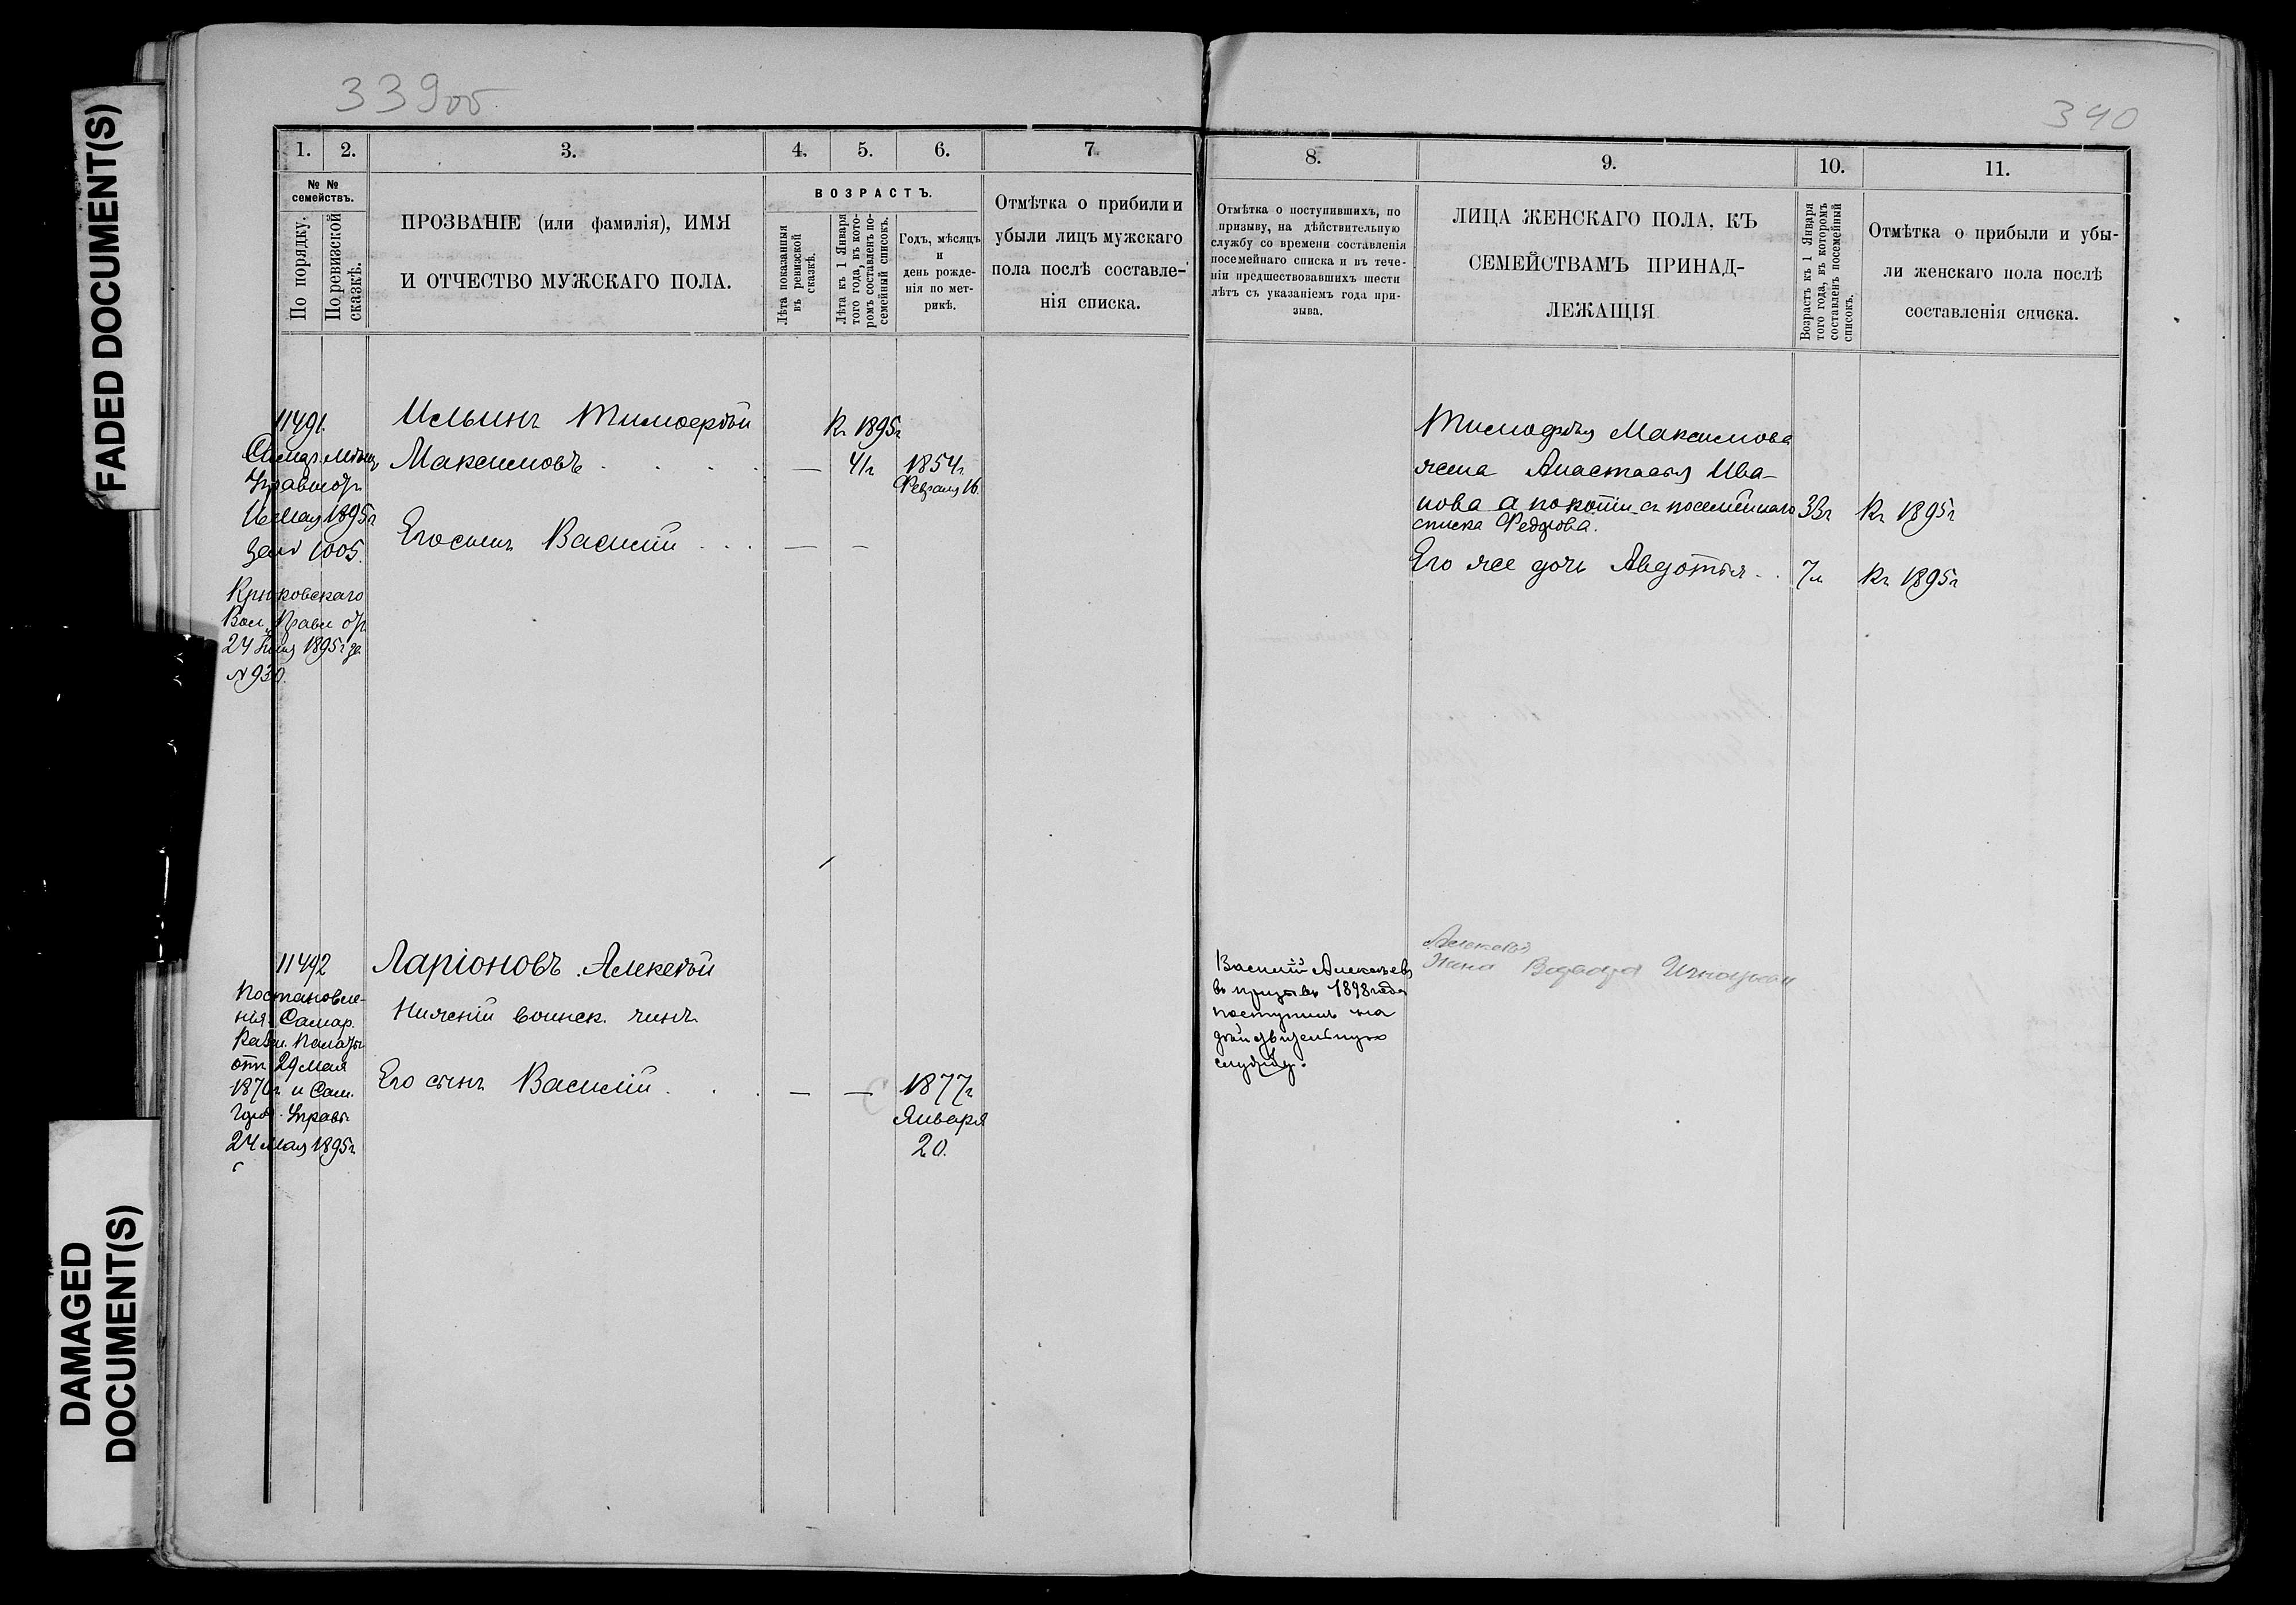 FADED DOCUMENT(S)
DAMAGED
DOCUMENT(S)
339об
340
1.
2.
3.
4.
5.
6.
7.
№ №
семействъ.
По порядку.
По ревизской
сказкѣ.
ПРОЗВАНІЕ (или фамилія), ИМЯ
И ОТЧЕСТВО МУЖСКАГО ПОЛА.
ВОЗРАСТЪ.
Лѣта показанныя
въ ревизской
сказкѣ.
Лѣта къ 1 Января
того года, въ кото-
ромъ составленъ по-
семейный списокъ.
Годъ, мѣсяцъ
и
день рожде-
нія по мет-
рикѣ.
Отмѣтка о прибили и
убыли лицъ мужскаго
пола послѣ составле-
нія списка.
8.
9.
10.
11.
Отмѣтка о поступившихъ, по
призыву, на дѣйствительную
службу со времени составленія
посемейнаго списка и въ тече-
ніи предшествовавшихъ шести
лѣтъ съ указаніемъ года при-
зыва.
ЛИЦА ЖЕНСКАГО ПОЛА, КЪ
СЕМЕЙСТВАМЪ ПРИНАД-
ЛЕЖАЩІЯ
Возрастъ къ 1 Января
того года, въ которомъ
составленъ посемейный
списокъ.
Отмѣтка о прибыли и убы-
ли женскаго пола послѣ
составленія списка.
11491.
1895г
1005.
Крюковскаго
Вол. Правл от
24 1895г за
№ 930.
Ильинъ Тимофѣй
Максимовъ
Его сынъ Василій
—
—
—
Къ 1895г
41г
1854г
Февраля 16.
Тимофѣя Максимова
жена Анастасія Ива-
нова а по копіи съ посемейнаго
списка Федорова.
33г
Къ 1895г
Его же дочь Авдотья
7л
Къ 1895г
11492
Постановле-
нія Самар.
Казен. Палаты
отъ 29 мая
1870г и Сам.
Город. Управы
24 мая 1895г
Ларіоновъ Алексѣй
Нижній воинск. чинъ
Его сынъ Василій
—
—
1877г
Января
20.
Василій Алексѣевъ
въ призывъ 1898 года
поступилъ на
дѣйствительную
службу.
Алексѣя
Жена